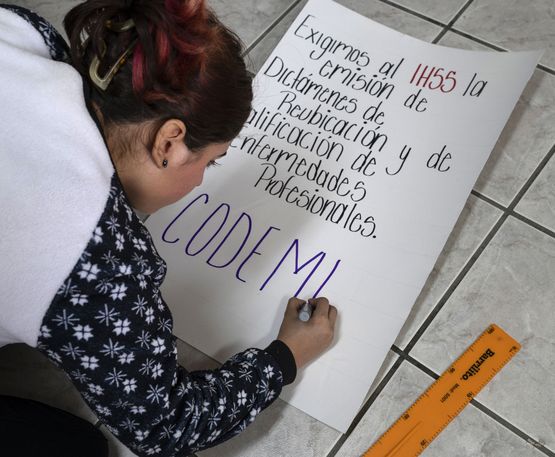 Exigimos al IHSS la
emisión de
Dictámenes de
Reubicación y de
alificación de
Enfermedades
Profesionales.
CODEM
Barrilito